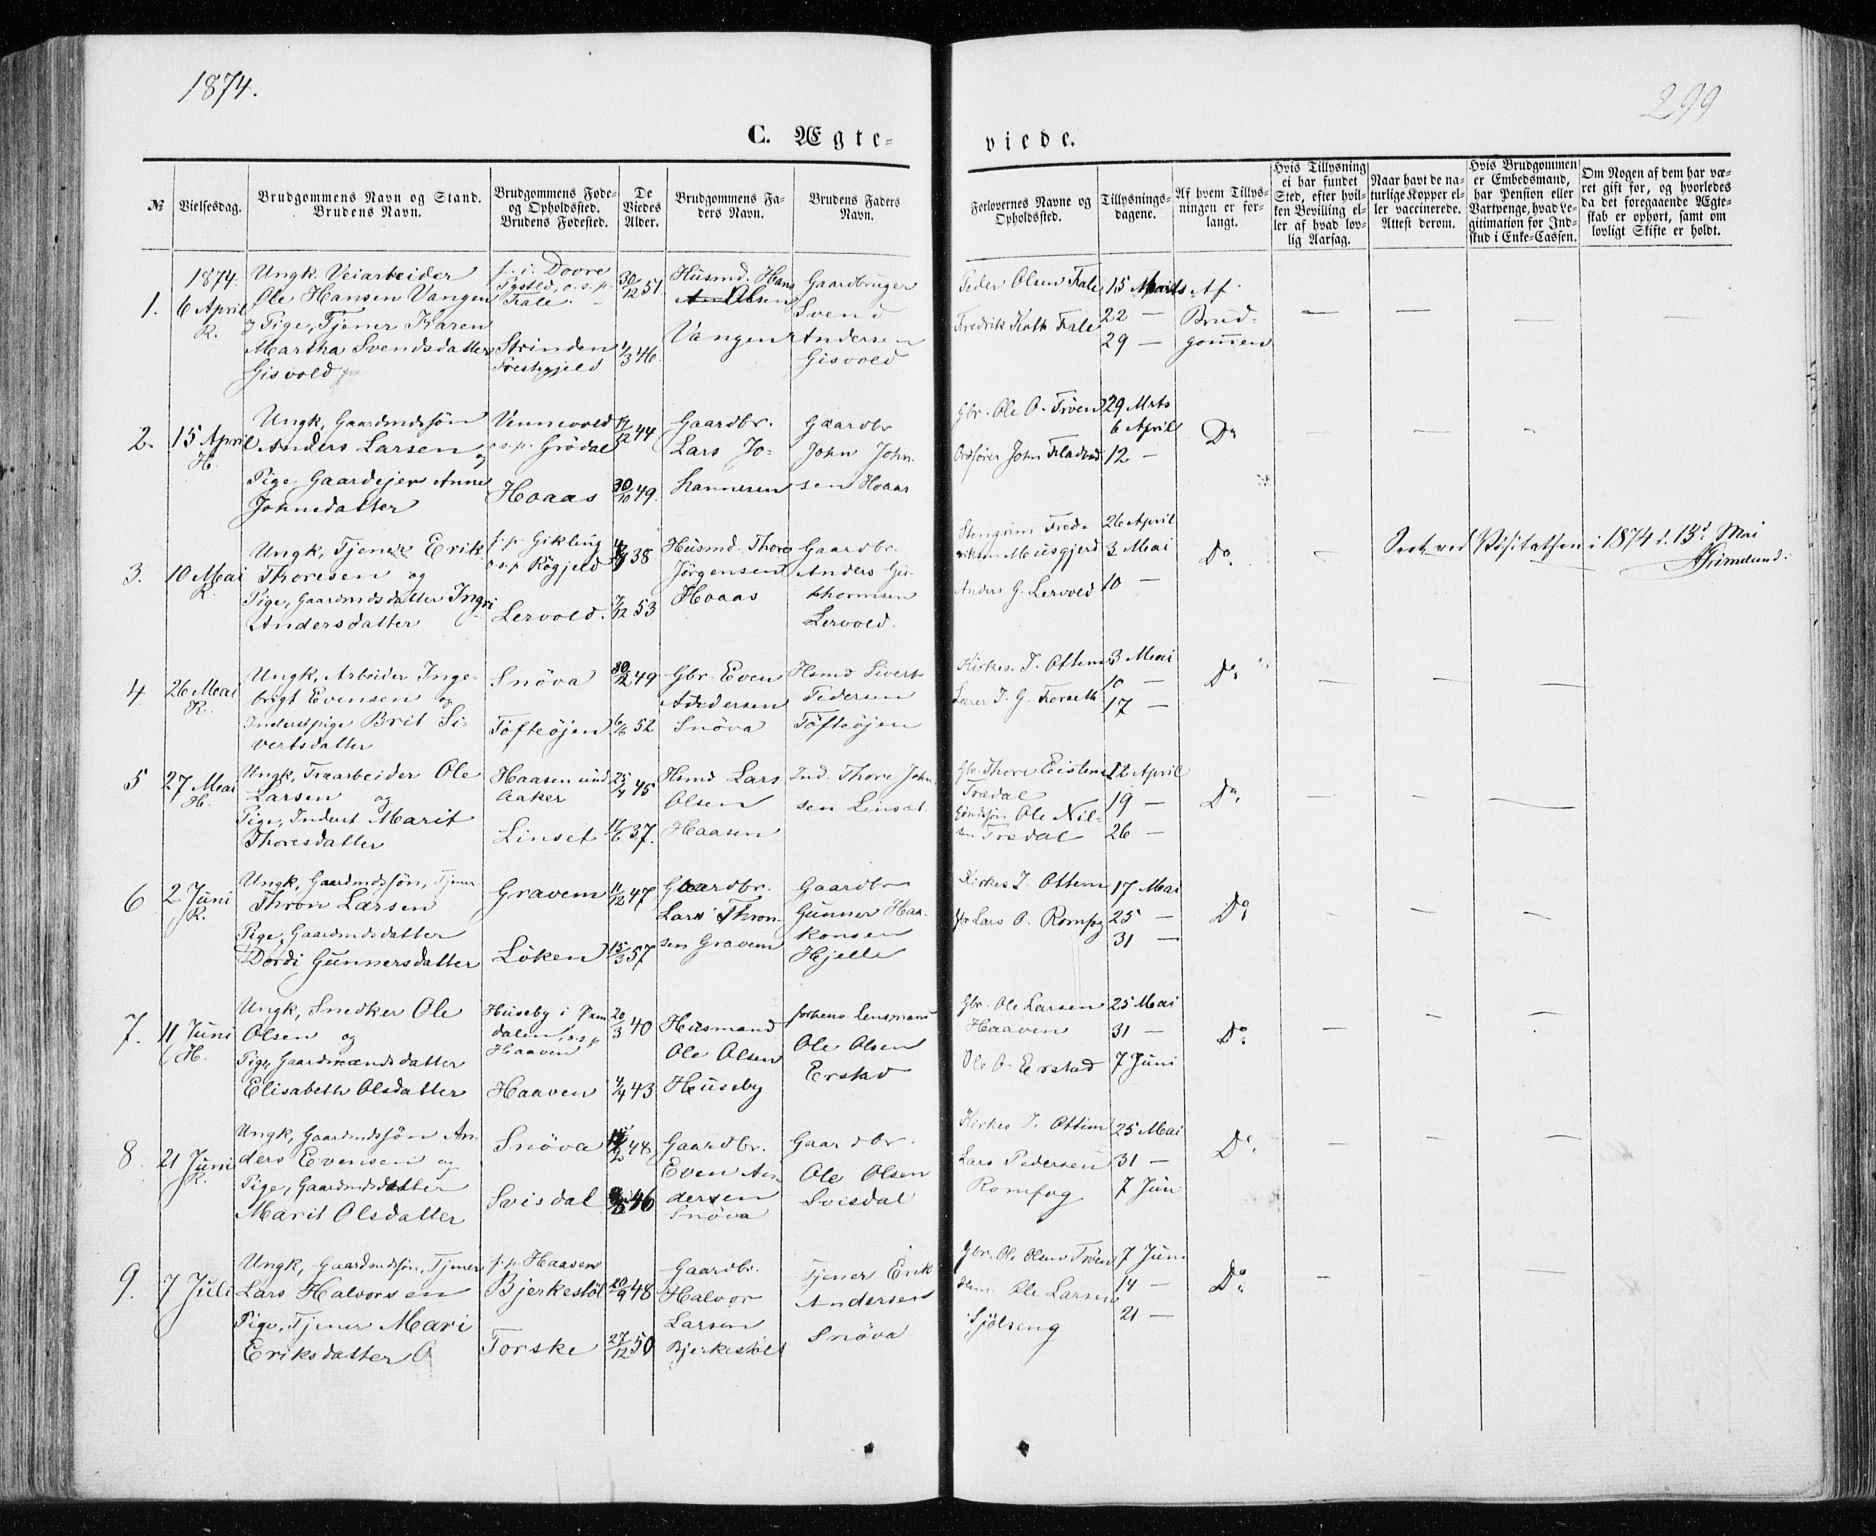 1874.
299
C. Ægte-
viede.
№
Vielsesdag.
Brudgommens Navn og Stand.
Brudens Navn.
Brudgommens Føde-
og Opholdssted.
Brudens Fødested.
De
Viedes
Alder.
Brudgommens Fa-
ders Navn.
Brudens Faders
Navn.
Forlovernes Navne og
Opholdssted.
Tillysnings-
dagene.
Af hvem Tillys-
ningen er for-
langt.
Hvis Tillysning
ei har fundet
Sted, efter hvil-
ken Bevilling el-
ler af hvad lov-
lig Aarsag.
Naar havt de na-
turlige Kopper el-
ler vaccinerede.
Attest derom.
Hvis Brudgommen
er Embedsmand,
har Pension eller
Vartpenge, hvad Le-
gitimation for Ind-
skud i Enke-Cassen.
Om Nogen af dem har væ-
ret gift før, og hvorledes
da det foregaaende Ægte-
skab er ophørt, samt om
lovligt Skifte er holdt.
1.
1874.
6 April
K.
Ungk. Veiarbeider
Ole Hansen Vangen
Pige, Tjener Karen
Martha Svendsdatter
Gisvold
f. i. Dovre
o. s. p.
Fale.
Strinden
Prestegjeld
30/12 51
1/3 46.
Husmd. Hans
Olsen
Vangen
Gaardbruger
Svend
Andersen
Gisvold
Peder Olsen Fale
Fredrik Koth Fale
15 Marts
22 —
29 —
Af
Brud-
gommen
2.
15 April
H.
Ungk, Gaardmdssön
Anders Larsen
og
Pige Gaardejer Anne
Johnsdatter
Vennevold
o. s. p. Grödal
Hoaas
44
30/10 49.
Gaardbr.
Lars Jo-
hannesen
Gaardbr
John John-
sen Hoaas
Gbr. Ole O. Tröen
Ordförer John Fladvad
29 Mrts
6 April
12 —
Do
3.
10 Mai
K.
Ungk, Tjener Erik
Thoresen og
Pige, Gaardmdsdatter Ingri
Andersdatter
f. p. Gikling
o s. p Rögjeld
Lervold.
38
7/12 53
Husmd. Thore
Jörgensen
Hoaas
Gaardbr.
Anders Gu-
thormsen
Lervold.
Stengrim Frede
riksen Musgjerd
Anders G. Lervold
26 April
3 Mai
10 —
Do
ved Visitatsen i 1874 d. 13d Mai
Grimelund.
4
26 Mai
K.
Ungk, Arbeider Inge-
brigt Evensen og
Inderstpige Brit Si-
vertsdatter
Snöva
Töfteöjen
30/12 49
6/6 52
Gbr. Even
Andersen
Snöva
Hsmd Sivert
Pedersen
Töfteöjen
Kirkes. J. Ottem
Lærer J. G. Forseth
3 Mai
10 —
17 —
Do
5
27 Mai
H.
Ungk, Traarbeider Ole
Larsen og
Pige, Inderst Marit
Thoresdatter
Haasen und
Aaker
Linset
25/4 45
17/6 37.
Hsmd Lars
Olsen
Haasen
Ind. Thore John
sen Linset
Gbr Thore Eistensen
Trædal
Gmdssön Ole Nil-
sen Trædal
12 April
19 —
26 —
Do
6
2 Juni
K.
Ungk, Gaardmdssön, Tjener
Thron Larsen
Pige, Gaardmdsdatter
Dordi Gunnersdatter
Gravem
Löken
11/12 47
15/3 57
Gaardbr.
Lars Thron-
sen Gravem
Gaardbr
Gunner Haa-
konsen
Hjelle
Kirkes J. Ottem
Gbr Lars O. Romfog
17 Mai
25 —
31 —
Do
7.
11 Juni
H.
Ungk, Snedker Ole
Olsen og
Pige, Gaardmændsdatter
Elisabeth Olsdatter
Huseby i
dalen, o. s. p
Haaven
Haaven
20/3 40
4/9 43
Husmand
Ole Olsen
Huseby
forhens Lensmand
Ole Olsen
Erstad
Gbr. Ole Larsen
Haaven
Ole O. Erstad
25 Mai
31 —
7 Juni
Do
8
21 Juni
K.
Ungk, Gaardmdssön An-
ders Evensen og
Pige, Gaardmdsdatter
Marit Olsdatter
Snöva
Svisdal
48
46
Gaardbr.
Even An-
dersen
Snöva
Gaardbr.
Ole Olsen
Svisdal
Kirkes J. Ottem
Lars Pedersen
Romfog
25 Mai
31 —
7 Jun
Do
9.
7 Juli
Ungk, Gaardmdssön, Tjener
Lars Halvorsen
Pige, Tjener Mari
Eriksdatter
f. p. Haasen
Bjerkestöl
Torske
20/9 48
27/12 50
Gaardbr.
Halvor
Larsen
Bjerkestöl
Tjener Erik
Andersen
Snöva
Gbr. Ole Olsen Tröen
Ole Larsen
Sjölseng
7 Jun
14 —
21 —
Do